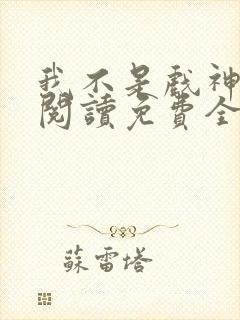 我不是戲神
閱讀免費全
蘇雷塔